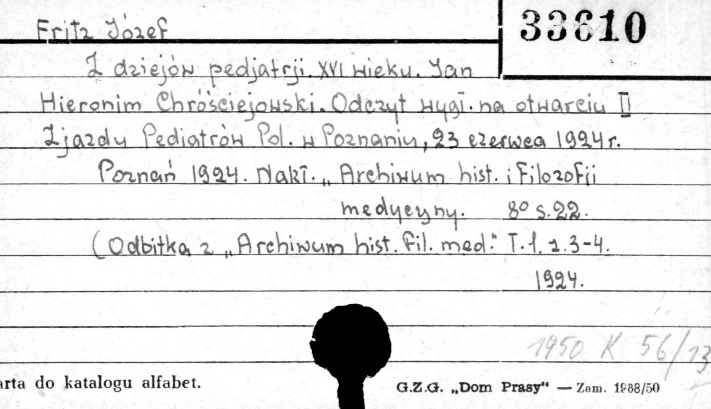 Fritz Józef
33610
Z dziejów pedjatrji. XVI wieku. Jan
Hieronim Chróściejowski. Odczyt wygł. na otwarciu II
Zjazdu Pediatrów Pol. w Poznaniu, 23 czerwca 1924 r.
Poznań 1924. Nakł. „Archiwum hist. i filozofii
medycyny. 8° s. 22.
(Odbitka z „Archiwum hist. fil. med." T. 1. z. 3-4.
1924.
1950 K 56/13
arta do katalogu alfabet.
G.Z.G. „Dom Prasy" — Zam. 1988/50